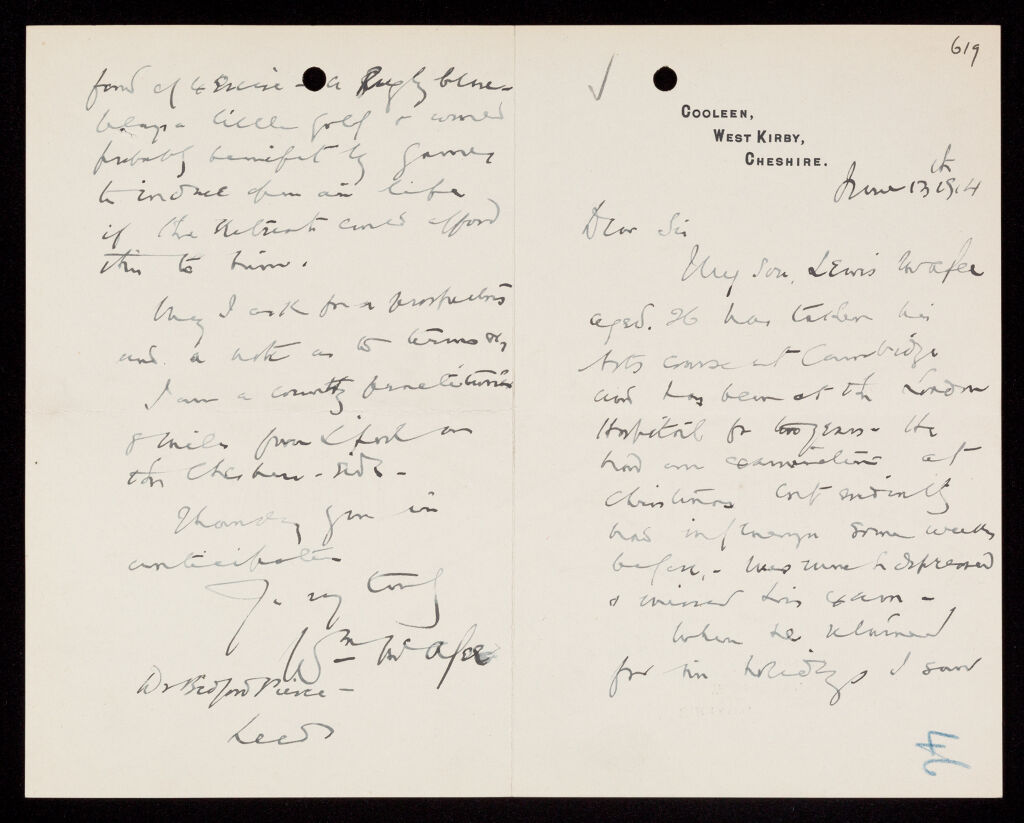 619
COOLEEN,
WEST KIRBY,
CHESHIRE.
June 13th 1914
Dear Sir
My son, Lewis McAfee
aged. 26 has taken his
Arts course at Cambridge
and has been at the London
Hospital for two years - He
had an examination at
Christmas but evidently
had influenza some weeks
before, - was much depressed
& missed his exam -
When he returned
for his holidays I saw
fond of exercise - a Rugby blue -
plays a little golf & would
probably benefit by games
& open air life
if the Retreat could afford
this to him.
May I ask for a prospectus
and a note as to terms &c,
I am a country practitioner
8 miles from L'pool on
the Cheshire - side -
Thanking you in
anticipation
Yrs very truly
Wm McAfee
Dr Bedford Pierce -
Leeds